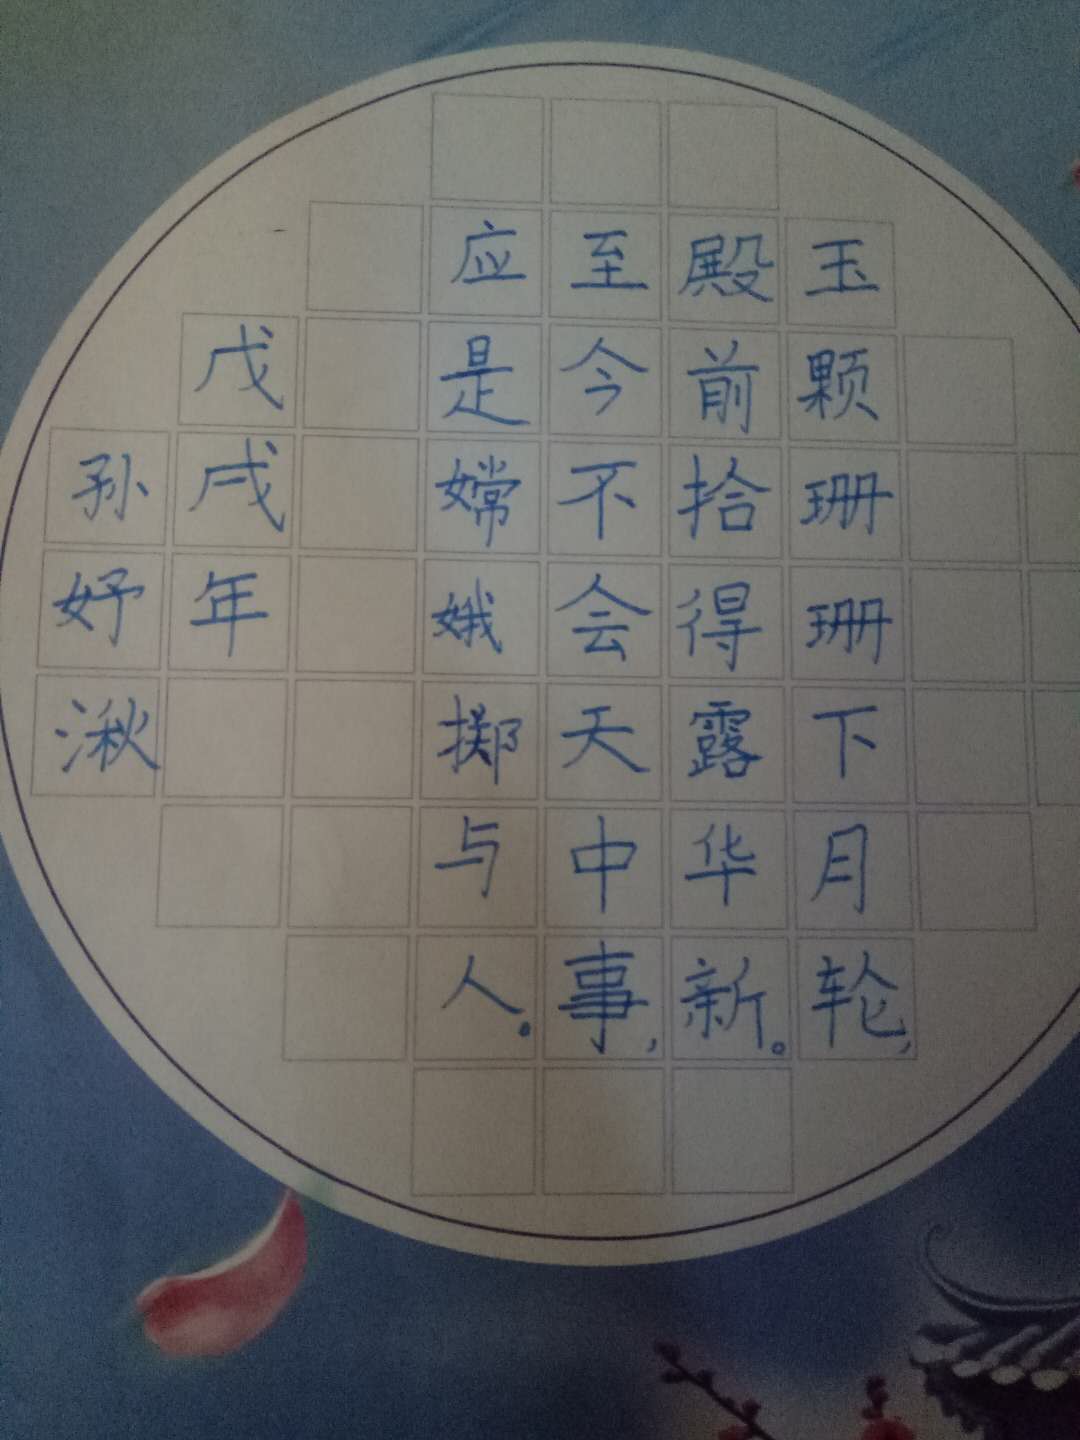 玉颗珊珊下月轮,
殿前拾得露华新。
至今不会天中事,
应是嫦娥掷与人。
戊戌年
孙妤湫